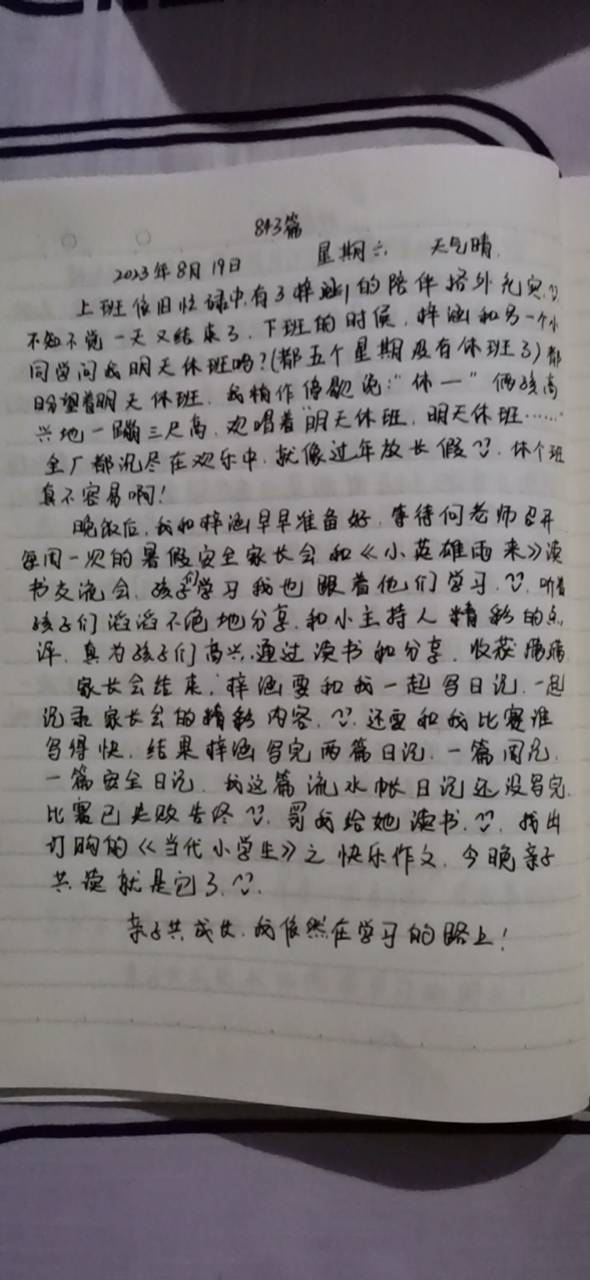 843篇
2023年8月19日 星期六 天气晴
上班依旧忙碌中,有了梓涵的陪伴格外充实。
不知不觉一天又结束了,下班的时候,梓涵和另一个小
同学问我明天休班吗?(都五个星期没有休班了)都
盼望着明天休班,我稍作停歇说:"休一"俩孩高
兴地一蹦三尺高,欢唱着"明天休班,明天休班……"
全厂都沉尽在欢乐中,就像过年放长假,休个班
真不容易啊!
晚饭后,我和梓涵早早准备好,等待何老师召开
每周一次的暑假安全家长会和《小英雄雨来》读
书交流会,孩子们学习我也跟着他们学习,听着
孩子们滔滔不绝地分享,和小主持人精彩的点
评,真为孩子们高兴,通过读书和分享,收获满满
家长会结束,梓涵要和我一起写日记,一起
记录家长会的精彩内容,还要和我比赛谁
写得快,结果梓涵写完两篇日记,一篇周记,
一篇安全日记,我这篇流水帐日记还没写完,
比赛已失败告终,罚我给她读书,找出
订购的《当代小学生》之快乐作文,今晚亲子
共读就是它了。
亲子共成长,我依然在学习的路上!